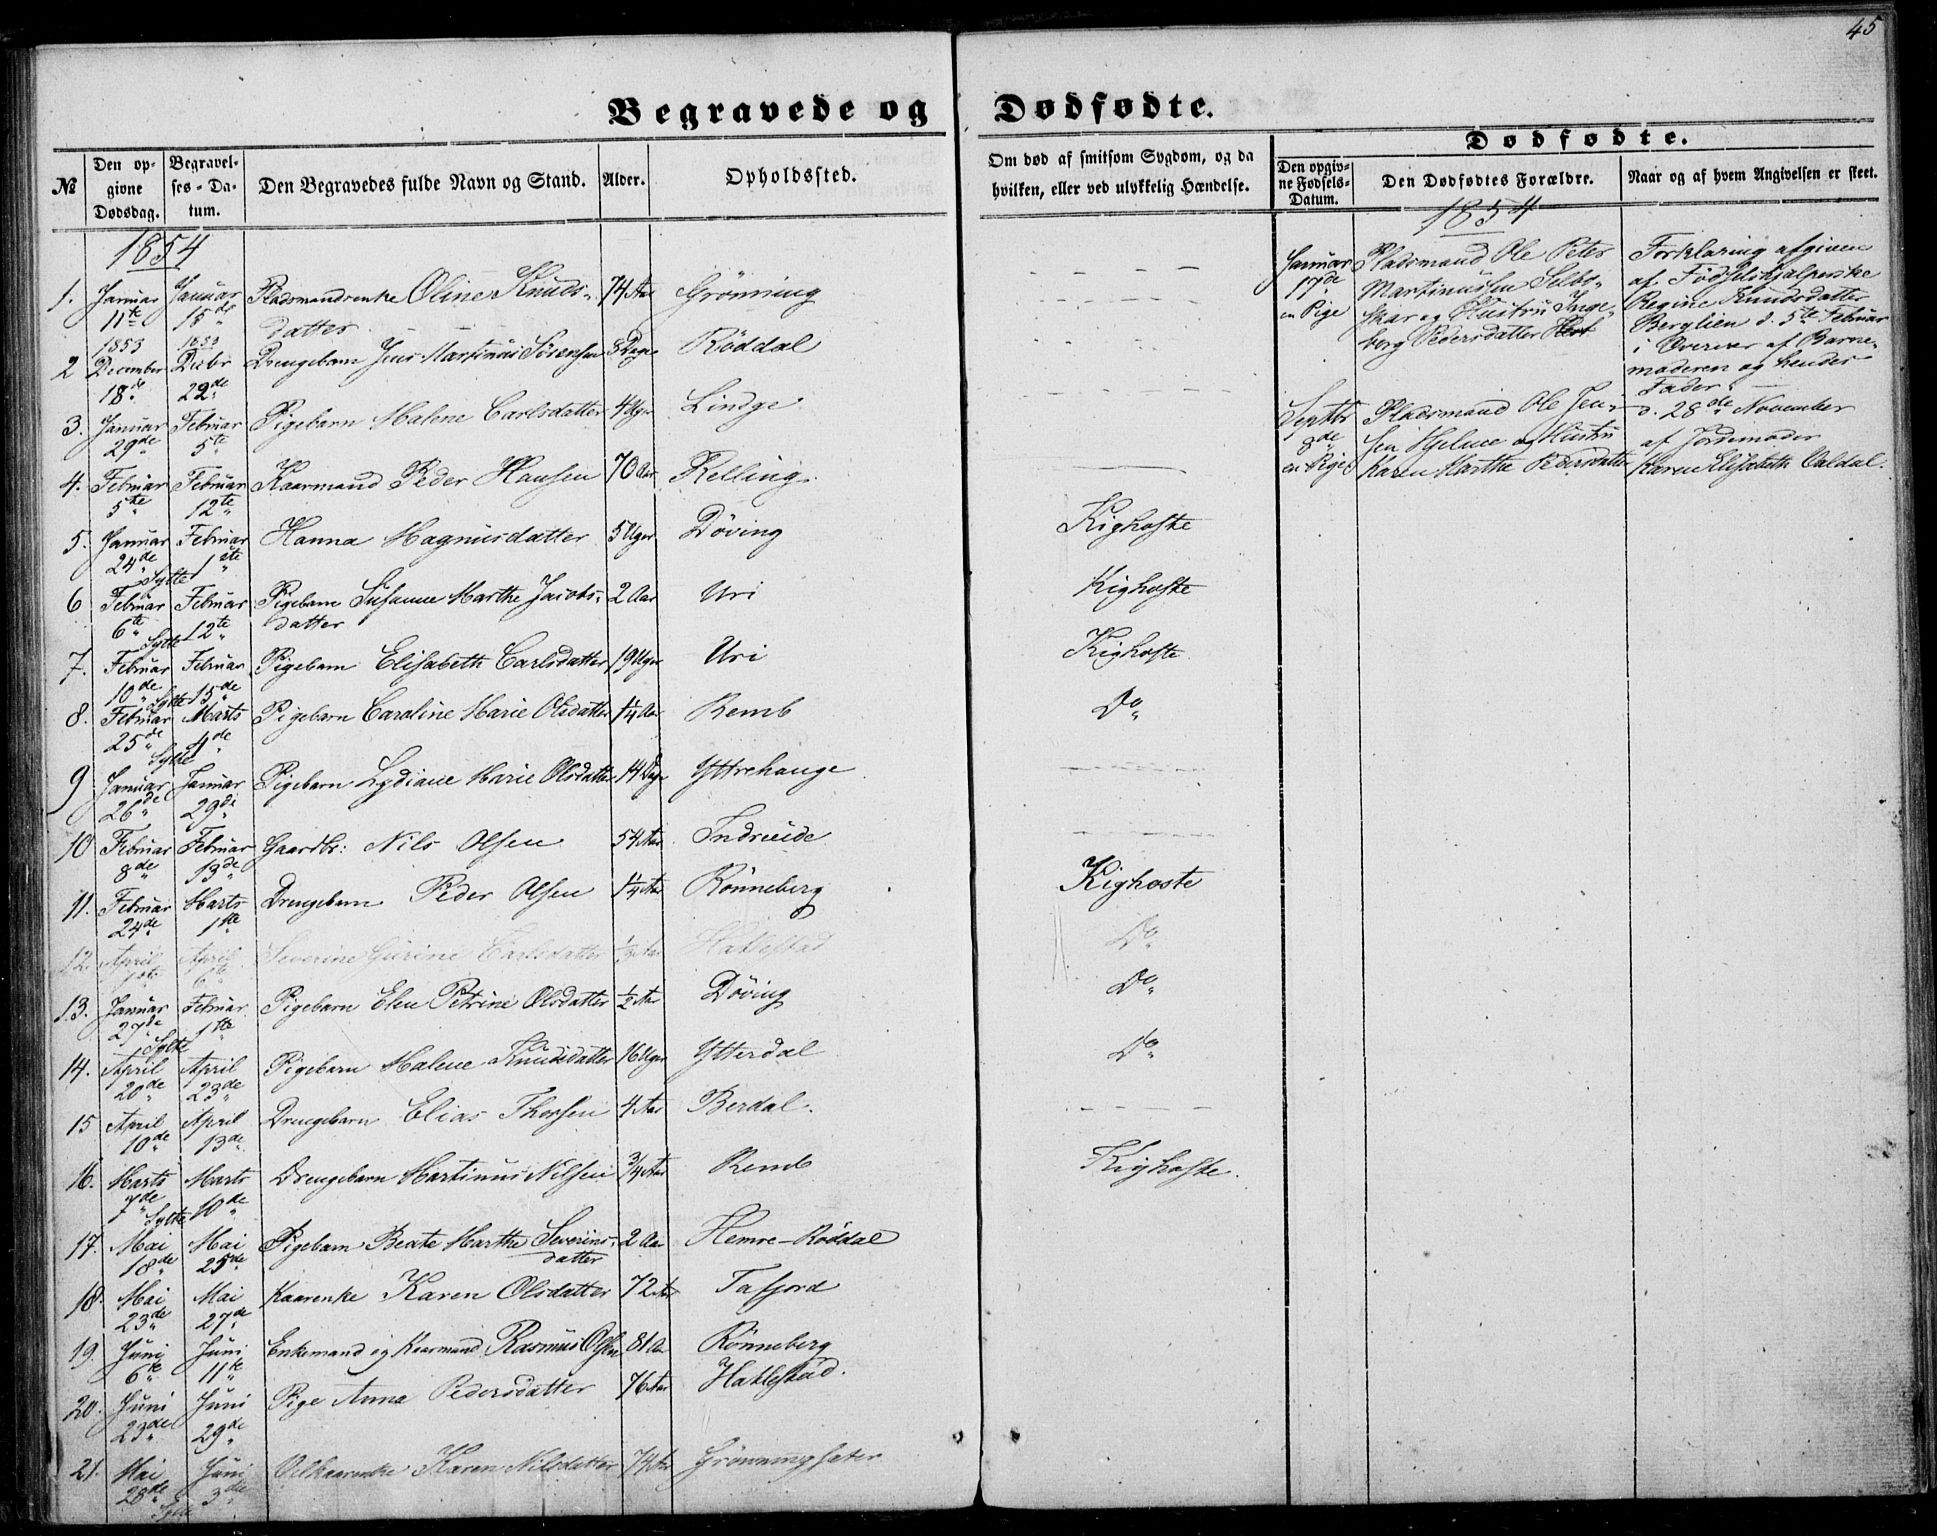 45
Begravede og Dødfødte.
№
Den opgivne Dødsdag.
Begravelses-Datum.
Den Begravedes fulde Navn og Stand.
Alder.
Opholdssted.
Om død af smitsom Sygdom, og da
hvilken, eller ved ulykkelig Hændelse.
Dødfødte.
Den opgivne Fødsels-Datum.
Den Dødfødtes Forældre.
Naar og af hvem Angivelsen er skeet.
1854
1. Januar 11te Januar 15de Pladsmandsenke Oline Knudsdatter 74 Aar Grønning
1853 1853
2 December 18de Decbr 22de Drengebarn Jens Martinus Sørensen 3 Dage Røddal
3. Januar 29de Februar 5te Pigebarn Malene Carlsdatter 4 Uger Linge
4. Februar 5te Februar 12te Kaarmand Peder Hansen 70 Aar Relling
5. Januar 24de Februar 1ste Hanna Magnusdatter 5 Uger Døving Kighoste
Sylte
6 Februar 6te Februar 12te Pigebarn Susanne Marthe Jacobsdatter 2 Aar Uri Kighoste
Sylte
7. Februar 10de Februar 15de Pigebarn Elisabeth Carlsdatter 19 Uger Uri Kighoste
Sylte
8. Februar 25de Marts 4de Pigebarn Caroline Marie Olsdatter 1/4 Aar Remb Do
Sylte
9 Januar 26de Januar 29de Pigebarn Lydiane Marie Olsdatter 14 Dage Yttrehauge
10 Februar 8de Februar 13de Gaardbr: Nils Olsen 54 Aar Indreeide
11. Februar 24de Marts 1ste Drengebarn Peder Olsen 1/4 Aar Rønneberg Kighoste
12. April 1ste April 6te Severine Gurine Carlsdatter 1/2 Aar Haklestad Do
13. Januar 27de Februar 1ste Pigebarn Elen Petrine Olsdatter 1/2 Aar Døving Do
Sylte
14. April 20de April 23de Pigebarn Malene Knudsdatter 16 Uger Ytterdal Do
15 April 10de April 13de Drengebarn Elias Thorsen 4 Aar Berdal.
16. Marts 7de Marts 10de Drengebarn Martinus Nilsen 3/4 Aar Remb Kighoste.
Sylte
17. Mai 18de Mai 25de Pigebarn Beate Marthe Severinsdatter 2 Aar Hemre-Røddal
18. Mai 23de Mai 27de Kaarenke Karen Olsdatter 72 Aar Tafjord
19. Juni 6te Juni 11te Enkemand og Kaarmand Rasmus Olsen 81 Aar Rønneberg
20. Juni 23de Juni 29de Pige Anna Pedersdatter 76 Aar Haklestad.
21. Mai 28de Juni 3die Karen Nilsdatter 74 Aar Grønningsæter
1854
Januar 17de en Pige
Pladsmand Ole Peter
Martinussen Selboskar og Hustru Ingeborg Pedersdatter
Forklaring afgiven
af Fødselshjælperske
Regine Knudsdatter
Berglien d. 5te Februar
i Overvær af Barnemoderen og hendes
Fader.
Septbr 8de en Pige
Pladsmand Ole Jensen Hjelme og Hustru
Karen Marthe Pedersdatter
d. 28de November
af Jordemoder
Karen Elisabeth Valdal.